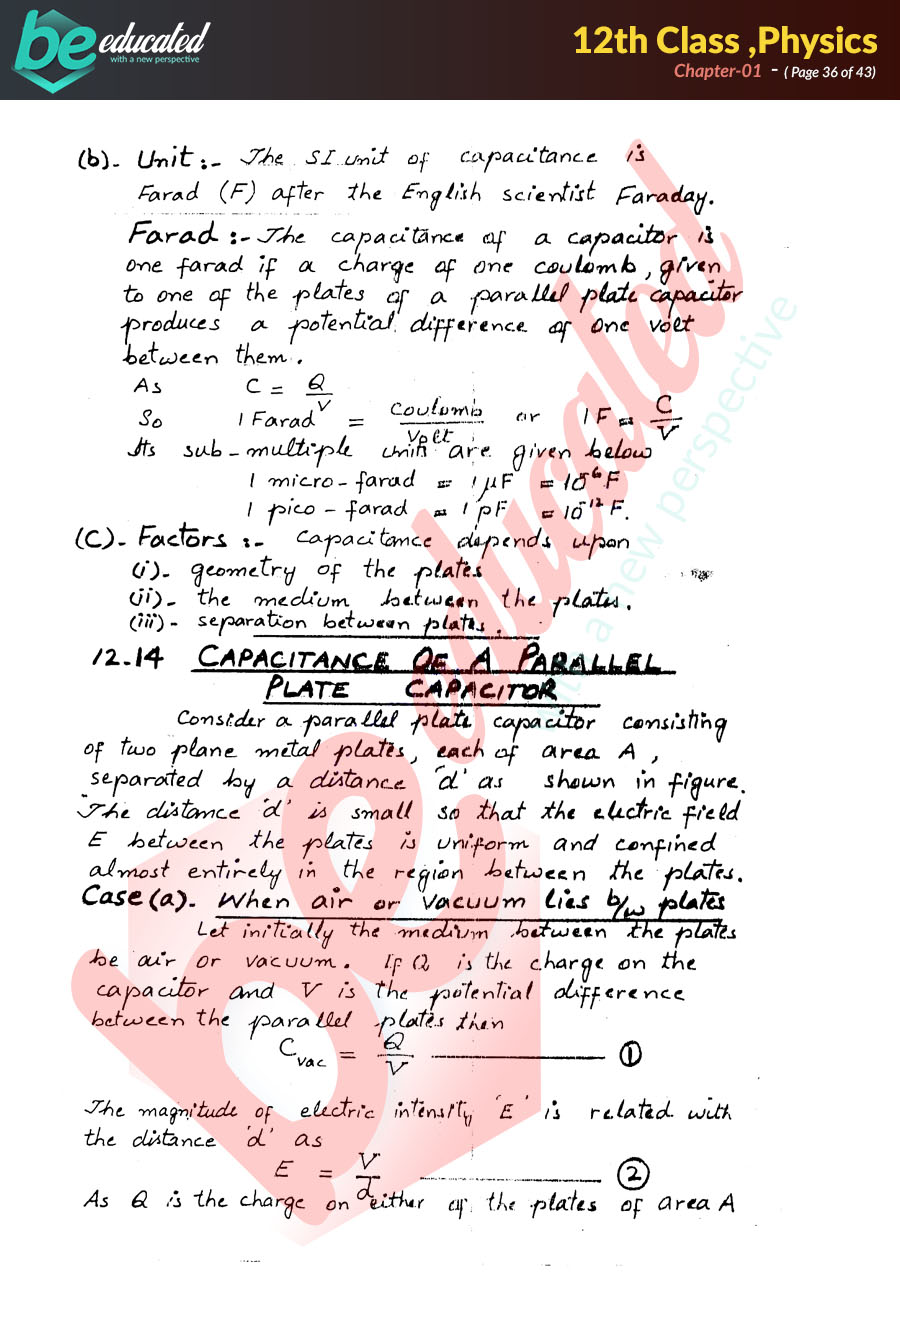 be educated
with a new perspective
12th Class ,Physics
Chapter-01 - ( Page 36 of 43)
(b)- Unit :- The SI unit of capacitance is
Farad (F) after the English scientist Faraday.
Farad :- The capacitance of a capacitor is
one farad if a charge of one coulomb, given
to one of the plates of a parallel plate capacitor
produces a potential difference of one volt
between them.
As C = Q/V
So 1 Farad = Coulomb/Volt or 1 F = C/V
Its sub-multiple units are given below
1 micro-farad = 1 μF = 10⁻⁶ F
1 pico-farad = 1 pF = 10⁻¹² F.
(C)- Factors :- Capacitance depends upon
(i)- geometry of the plates
(ii)- the medium between the plates.
(iii)- separation between plates.
12.14 CAPACITANCE OF A PARALLEL
PLATE CAPACITOR
Consider a parallel plate capacitor consisting
of two plane metal plates, each of area A,
separated by a distance 'd' as shown in figure.
The distance 'd' is small so that the electric field
E between the plates is uniform and confined
almost entirely in the region between the plates.
Case (a). When air or vacuum lies b/w plates
Let initially the medium between the plates
be air or vacuum. If Q is the charge on the
capacitor and V is the potential difference
between the parallel plates then
Cvac = Q/V ——— ①
The magnitude of electric intensity 'E' is related with
the distance 'd' as
E = V/d ——— ②
As Q is the charge on either of the plates of area A
be educated
with a new perspective